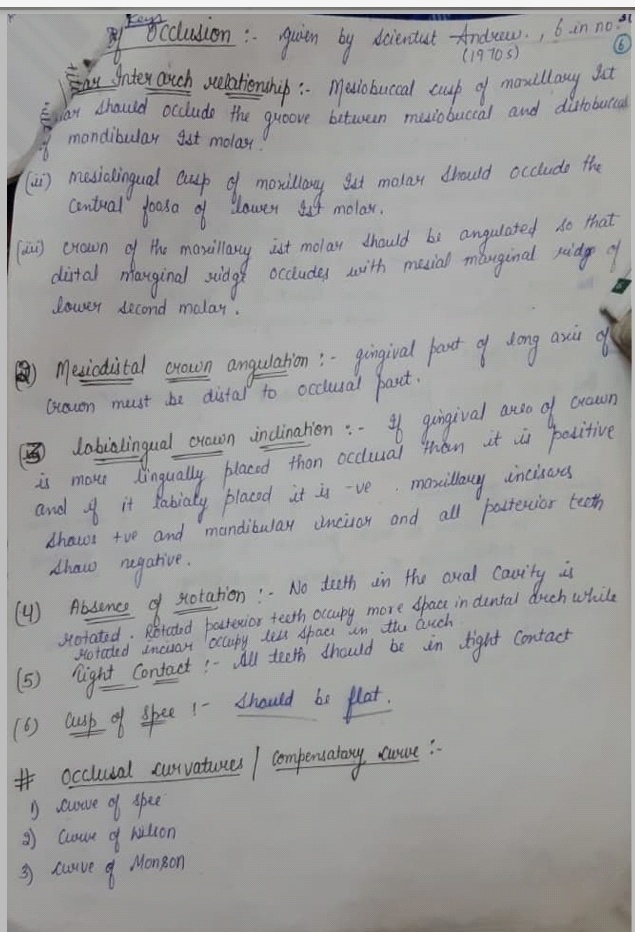 Keys
of Occlusion :- given by scientist Andrew. , 6 in no.
(1970s)
6
lar Inter arch relationship :- Mesiobuccal cusp of maxillary Ist
lar should occlude the groove between mesiobuccal and distobuccal
mandibular Ist molar.
(ii) mesialingual cusp of maxillary Ist molar should occlude the
central foosa of lower Ist molar.
(iii) crown of the maxillary ist molar should be angulated so that
distal marginal ridge occludes with mesial marginal ridge of
lower second molar.
(2) Mesiodistal crown angulation :- gingival part of long axis of
crown must be distal to occlusal part.
(3) labialingual crown inclination :- If gingival area of crown
is more lingually placed than occlusal than it is positive
and if it labialy placed it is -ve . maxillary incisors
shows +ve and mandibular incisor and all posterior teeth
shaw negative.
(4) Absence of rotation :- No teeth in the oral cavity is
rotated. Rotated posterior teeth occupy more space in dental arch while
rotated incisor occupy less space in the arch
(5) Tight Contact :- All teeth should be in tight contact
(6) Cusp of spee :- Should be flat.
# Occlusal curvatures / Compensatary curve :-
1) curve of spee
2) Curve of wilson
3) curve of Monson